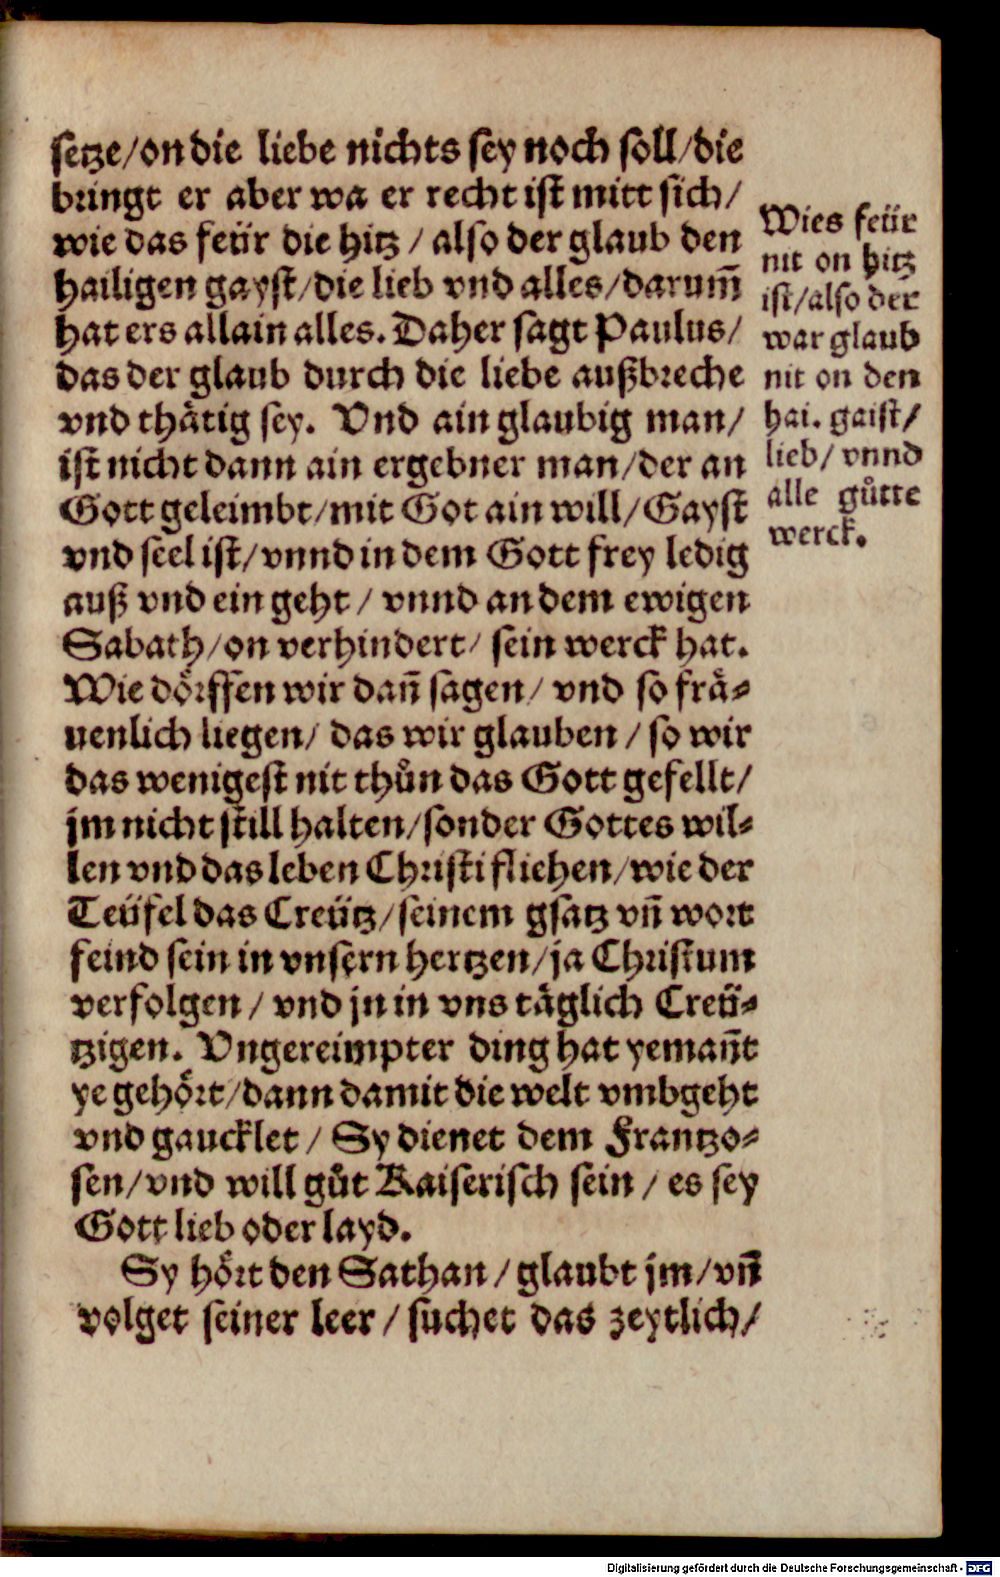 setze/on die liebe nichts sey noch soll/die
bringt er aber wa er recht ist mitt sich/
wie das feür die hitz / also der glaub den
hailigen gayst/die lieb vnd alles/darum̄
hat ers allain alles. Daher sagt Paulus/
das der glaub durch die liebe außbreche
vnd thätig sey. Vnd ain glaubig man/
ist nicht dann ain ergebner man/der an
Gott geleimbt/mit Got ain will/Gayst
vnd seel ist/vnnd in dem Gott frey ledig
auß vnd ein geht / vnnd an dem ewigen
Sabath/on verhindert/ sein werck hat.
Wie dörffen wir dañ sagen/ vnd so frä⸗
uenlich liegen/ das wir glauben / so wir
das wenigest nit thůn das Gott gefellt/
jm nicht still halten/sonder Gottes wil⸗
len vnd das leben Christi fliehen/wie der
Teüfel das Creütz/seinem gsatz vñ wort
feind sein in vnsern hertzen/ja Christum
verfolgen / vnd jn in vns täglich Creü⸗
tzigen. Vngereimpter ding hat yemañt
ye gehört/dann damit die welt vmbgeht
vnd gaucklet / Sy dienet dem Frantzo⸗
sen/vnd will gůt Kaiserisch sein / es sey
Gott lieb oder layd.
Sy hört den Sathan / glaubt jm/vñ
volget seiner leer / suchet das zeytlich/
Wies feür
nit on hitz
ist/also der
war glaub
nit on den
hai. gaist/
lieb/ vnnd
alle gůtte
werck.
Digitalisierung gefördert durch die Deutsche Forschungsgemeinschaft - DFG